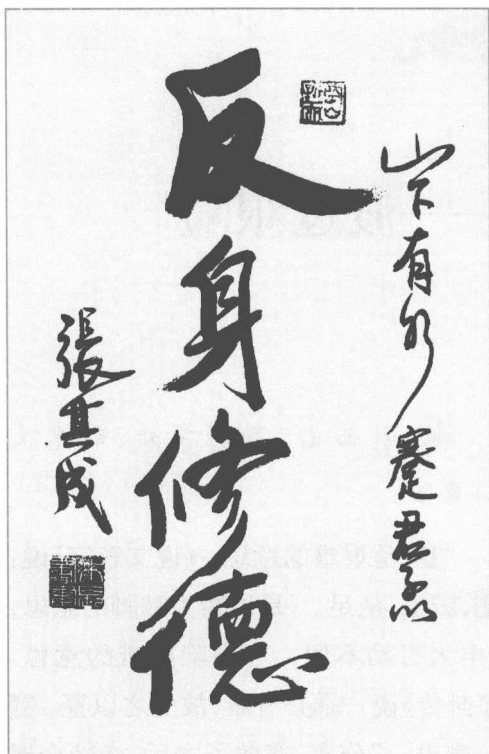 山下有水蹇君子以
反身修德
張其成